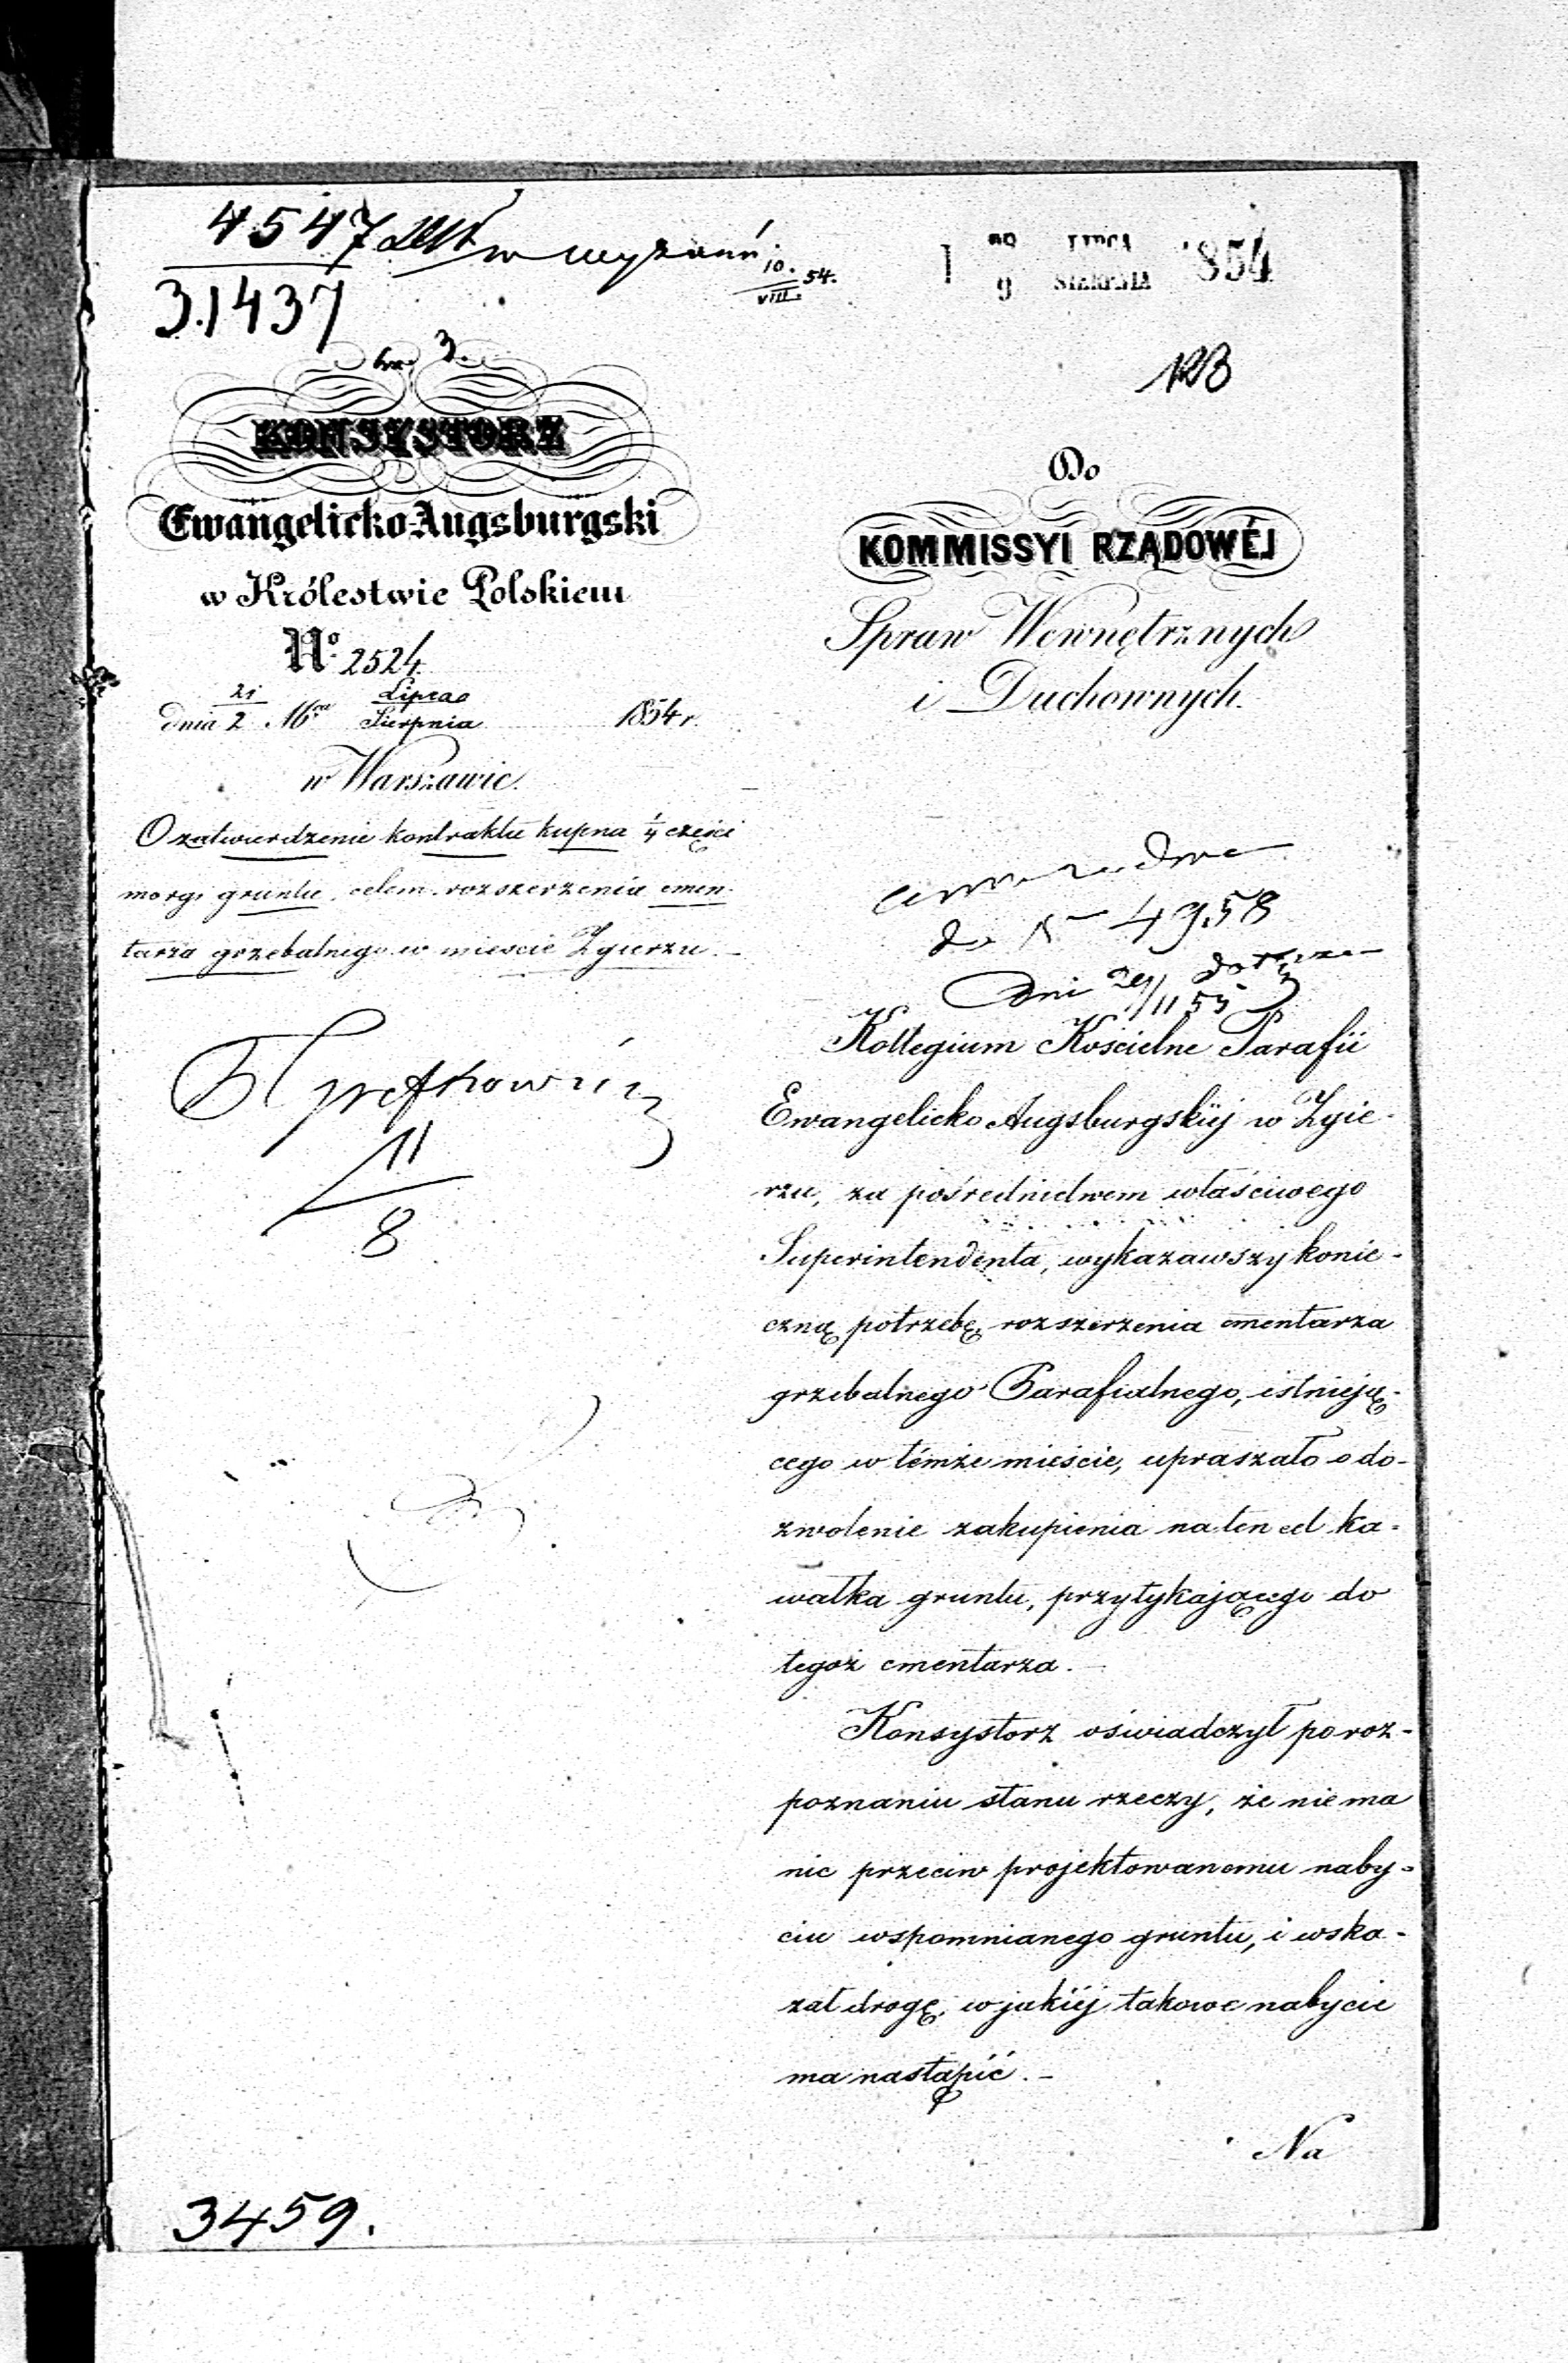 4547
3.1437
10.
VIII. 54.
LIPCA
9 SIERPNIA 1854
123
KONSYSTORZ
Ewangelicko-Augsburgski
w Królestwie Polskiem
No. 2524.
21 Lipca
dnia 2 Mca Sierpnia 1854 r.
w Warszawie.
O zatwierdzenie kontraktu kupna 1/4 części
morgi gruntu, celem rozszerzenia cmen-
tarza grzebalnego w mieście Zgierzu.
11
8
Do
KOMMISSYI RZĄDOWÉJ
Spraw Wewnętrznych
i Duchownych.
do 4958
Kollegium Kościelne Parafii
Ewangelicko Augsburgskiéj w Zgie-
rzu, za pośrednictwem właściwego
Superintendenta, wykazawszy konie-
czną potrzebę rozszerzenia cmentarza
grzebalnego Parafialnego, istnieją-
cego w témże mieście, upraszało o do-
zwolenie zakupienia na ten cel ka-
wałka gruntu, przytykającego do
tegoż cmentarza.
Konsystorz oświadczył po roz-
poznaniu stanu rzeczy, że nie ma
nic przeciw projektowanemu naby-
ciu wspomnianego gruntu, i wska-
zał drogę, w jakiéj takowe nabycie
ma nastąpić.
Na
3459.